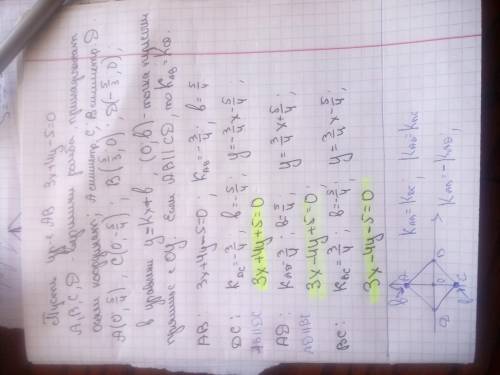 Пусть ур-е AB 3x+4y-5=0
A, B, C, D - вершины ромба, принадлежат
осям координат, A симметр. C, B симметр. D.
A(0; 5/4), C(0; -5/4), B(5/3; 0), D(-5/3; 0),
в уравнении y=kx+b, (0; b) - точка пересеч
прямых с Oy. Если AB||CD, то K_AB = K_CD.
AB: 3x+4y-5=0; K_AB = -3/4, b = 5/4
DC: K_DC = -3/4; b = -5/4; y = -3/4 x - 5/4;
AB||DC 3x+4y+5=0
AD: K_AD = 3/4; b = 5/4; y = 3/4 x + 5/4;
AD||BC 3x-4y+5=0;
BC: K_BC = 3/4; b = -5/4; y = 3/4 x - 5/4;
3x-4y-5=0
A
B
C
D
O
K_AD = K_BC, K_AB = K_DC
K_AD = -K_AB,